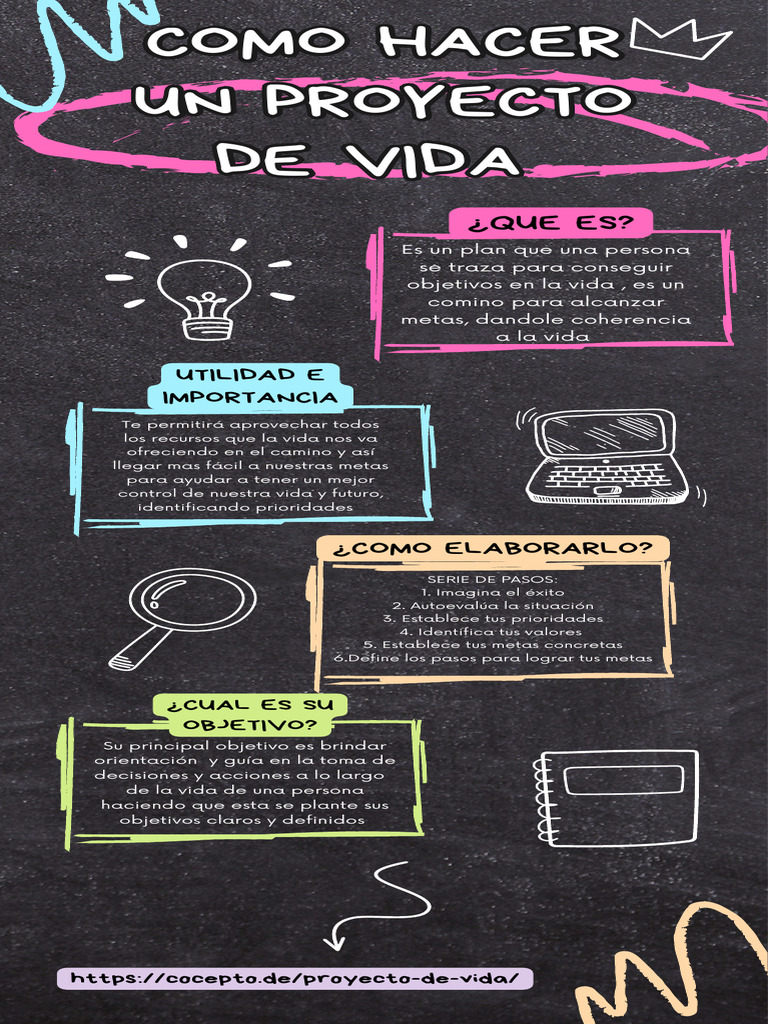 COMO HACER
UN PROYECTO
DE VIDA
¿QUE ES?
Es un plan que una persona
se traza para conseguir
objetivos en la vida , es un
comino para alcanzar
metas, dandole coherencia
a la vida
UTILIDAD E
IMPORTANCIA
Te permitirá aprovechar todos
los recursos que la vida nos va
ofreciendo en el camino y así
llegar mas fácil a nuestras metas
para ayudar a tener un mejor
control de nuestra vida y futuro,
identificando prioridades
¿COMO ELABORARLO?
SERIE DE PASOS:
1. Imagina el éxito
2. Autoevalúa la situación
3. Establece tus prioridades
4. Identífica tus valores
5. Establece tus metas concretas
6.Define los pasos para lograr tus metas
¿CUAL ES SU
OBJETIVO?
Su principal objetivo es brindar
orientación y guía en la toma de
decisiones y acciones a lo largo
de la vida de una persona
haciendo que esta se plante sus
objetivos claros y definidos
https://cocepto.de/proyecto-de-vida/